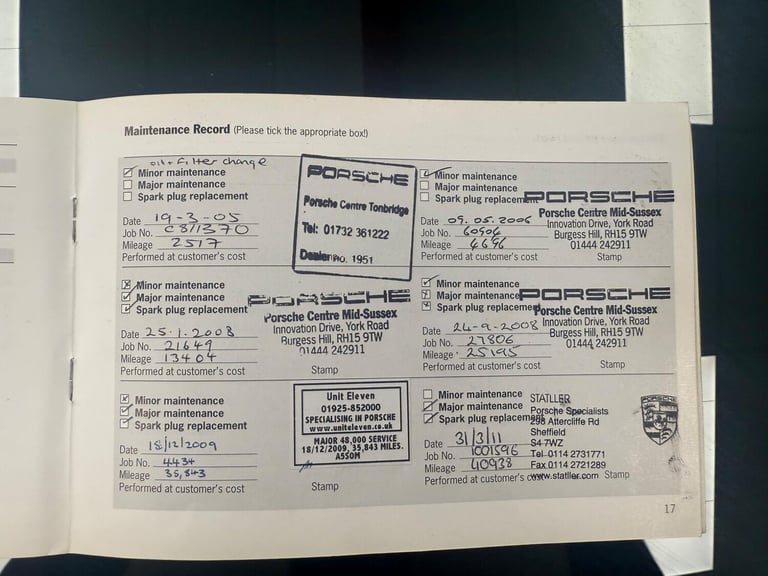 Maintenance Record (Please tick the appropriate box!)
oil + Filter change
Minor maintenance
Major maintenance
Spark plug replacement
Date 19-3-05
Job No. C811370
Mileage 2517
Performed at customer's cost
PORSCHE
Porsche Centre Tonbridge
Tel: 01732 361222
Dealer no. 1951
Minor maintenance
Major maintenance
Spark plug replacement
Date 09.05.2006
Job No. 60904
Mileage 4696
Performed at customer's cost
PORSCHE
Porsche Centre Mid-Sussex
Innovation Drive, York Road
Burgess Hill, RH15 9TW
01444 242911
Stamp
Minor maintenance
Major maintenance
Spark plug replacement
Date 25.1.2008
Job No. 21649
Mileage 13404
Performed at customer's cost
PORSCHE
Porsche Centre Mid-Sussex
Innovation Drive, York Road
Burgess Hill, RH15 9TW
01444 242911
Stamp
Minor maintenance
Major maintenance
Spark plug replacement
Date 24-9-2008
Job No. 27806
Mileage 25195
Performed at customer's cost
PORSCHE
Porsche Centre Mid-Sussex
Innovation Drive, York Road
Burgess Hill, RH15 9TW
01444 242911
Stamp
Minor maintenance
Major maintenance
Spark plug replacement
Date 18/12/2009
Job No. 4434
Mileage 35,843
Performed at customer's cost
Unit Eleven
01925-852000
SPECIALISING IN PORSCHE
www.uniteleven.co.uk
MAJOR 48,000 SERVICE
18/12/2009, 35,843 MILES.
A55OM
Stamp
Minor maintenance
Major maintenance
Spark plug replacement
Date 31/3/11
Job No. 1001596
Mileage 40938
Performed at customer's cost
STATLLER
Porsche Specialists
298 Attercliffe Rd
Sheffield
S4 7WZ
Tel 0114 2731771
Fax 0114 2721289
www.statller.com
Stamp
PORSCHE
17